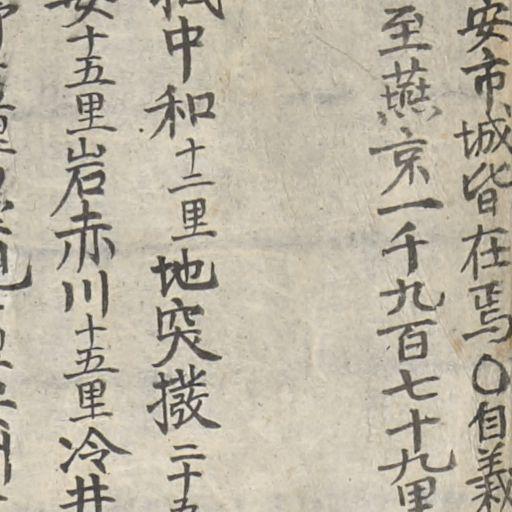 安市城皆在焉○自義
至燕京一千九百七十九里
中和十二里地突撥二十五
安十五里岩赤川十五里冷井